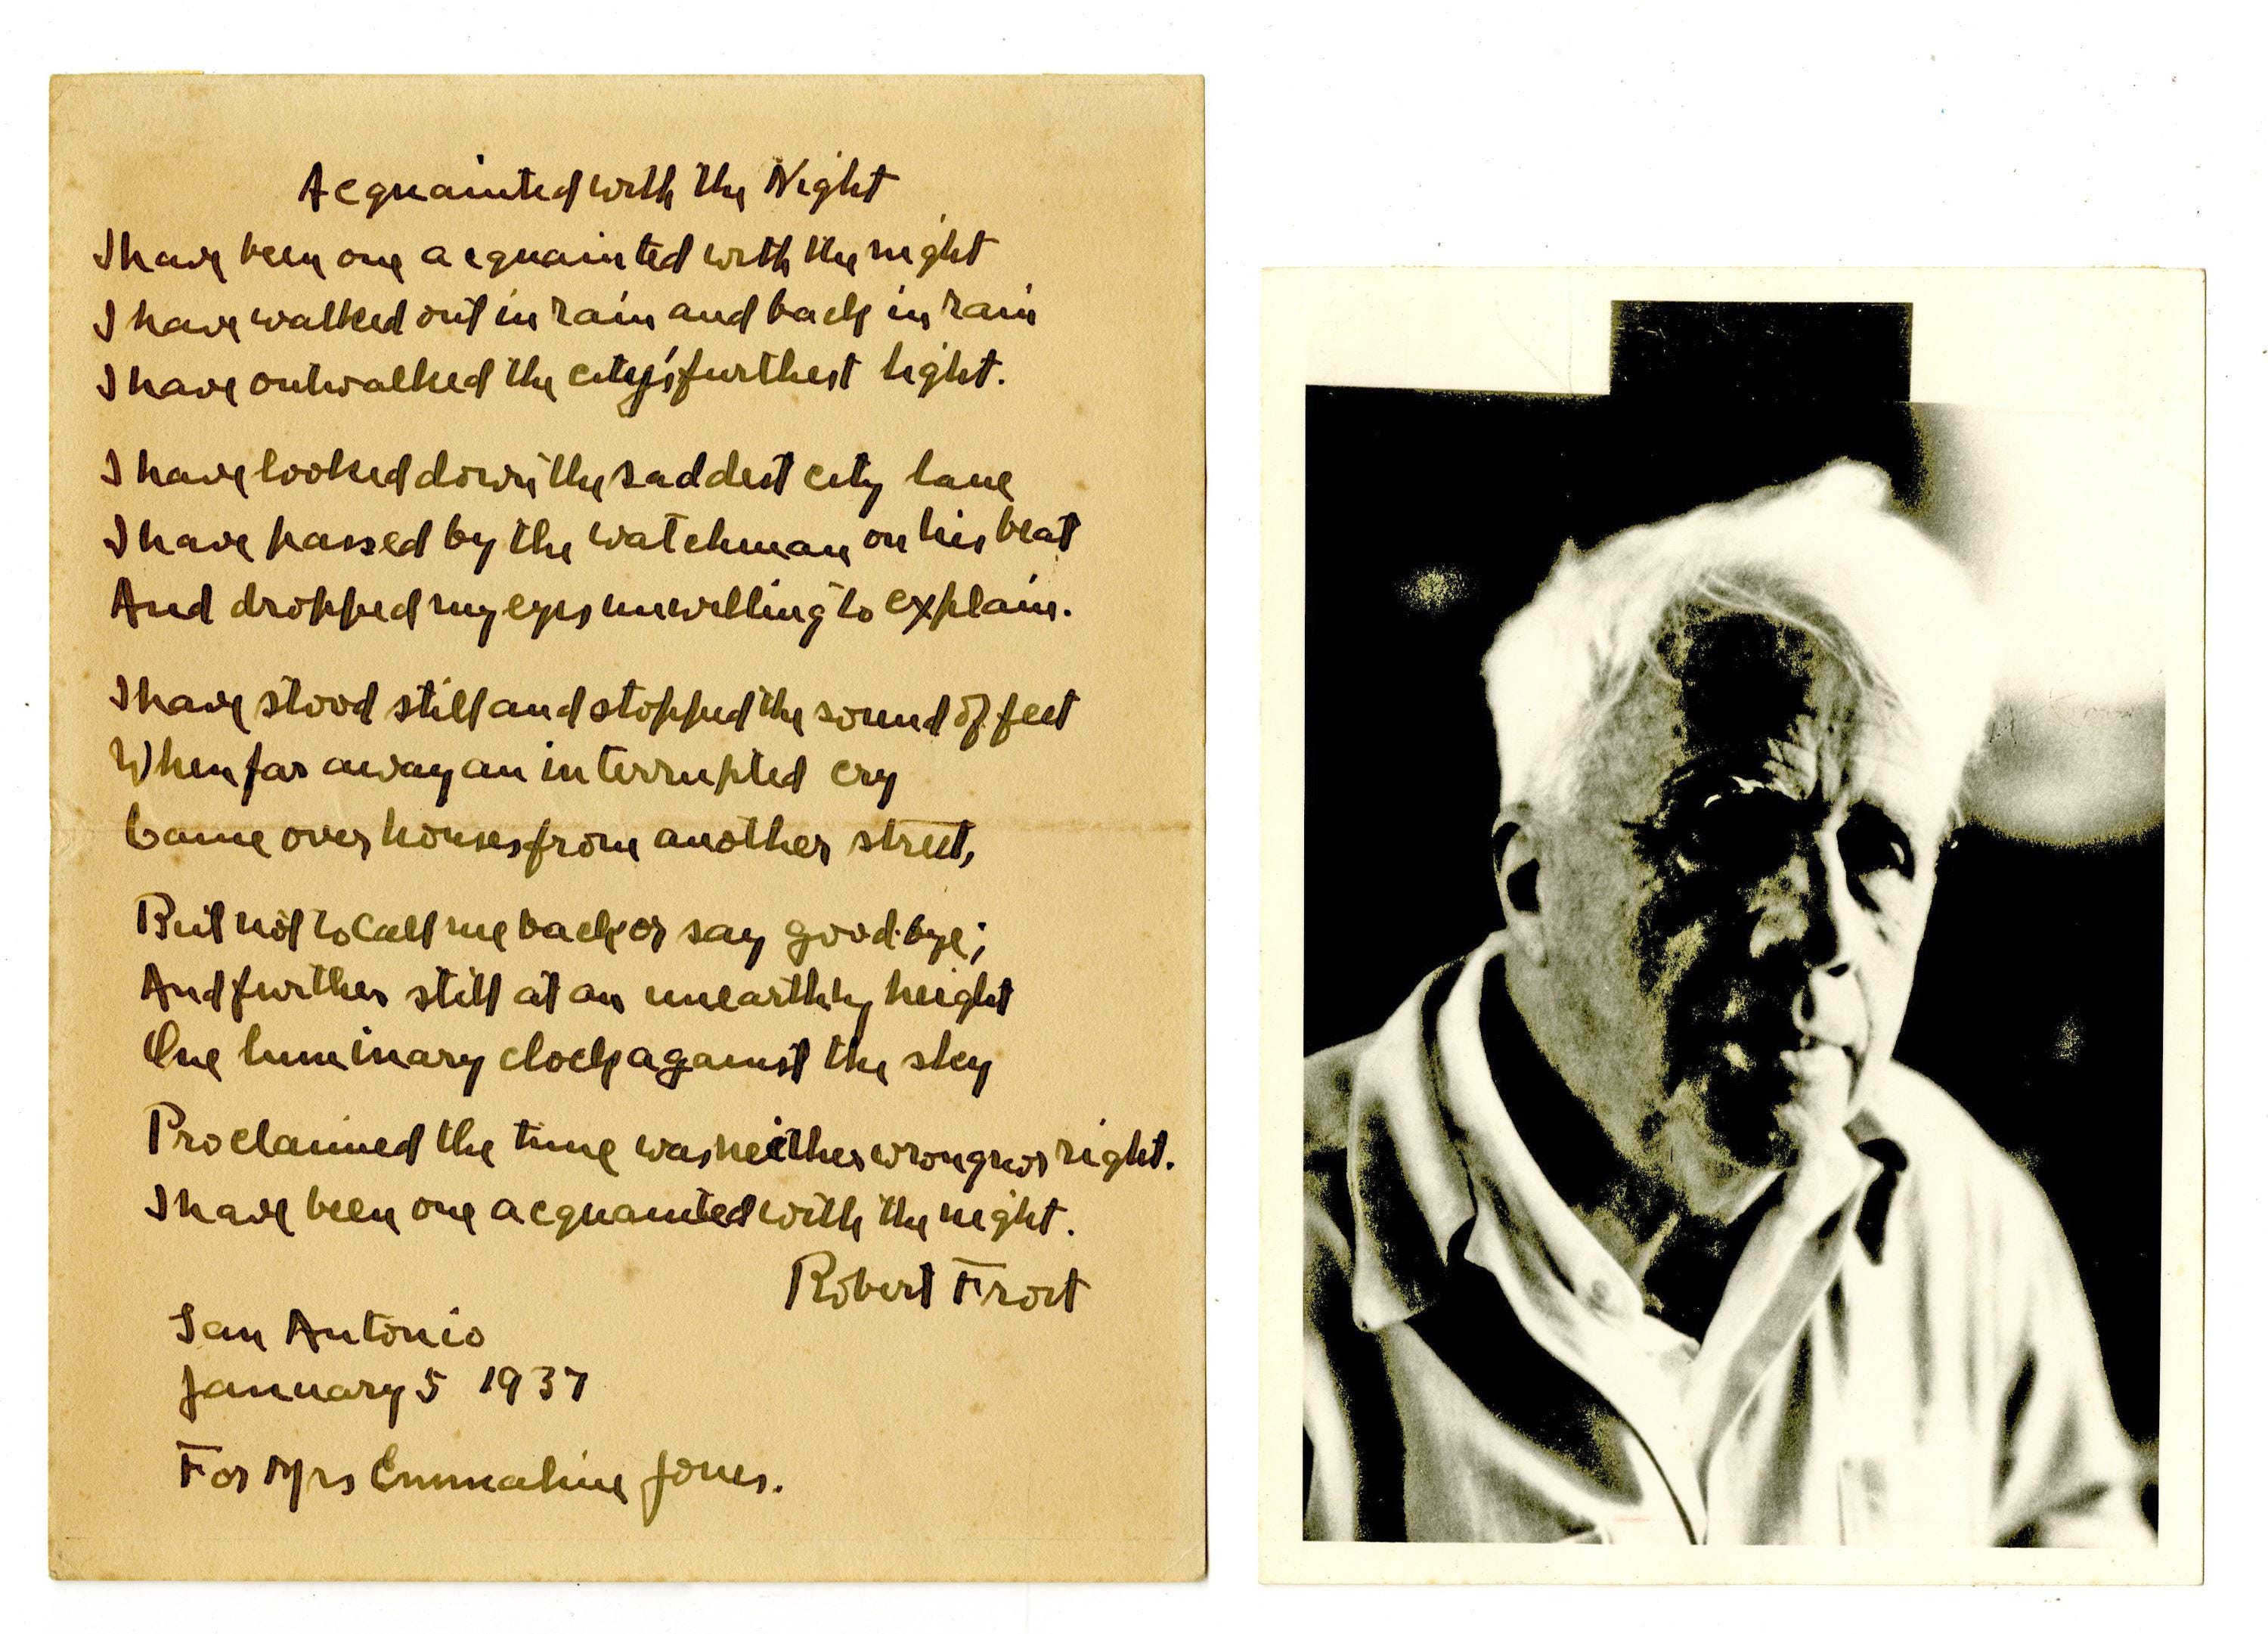 Acquainted with the Night
I have been one acquainted with the night
I have walked out in rain and back in rain
I have outwalked the city's furthest light.
I have looked down the saddest city lane
I have passed by the watchman on his beat
And dropped my eyes unwilling to explain.
I have stood still and stopped the sound of feet
When far away an interrupted cry
Came over houses from another street,
But not to call me back or say good-bye;
And further still at an unearthly height
One luminary clock against the sky
Proclaimed the time was neither wrong nor right.
I have been one acquainted with the night.
Robert Frost
San Antonio
January 5 1937
For Mrs Emmaline Jones.